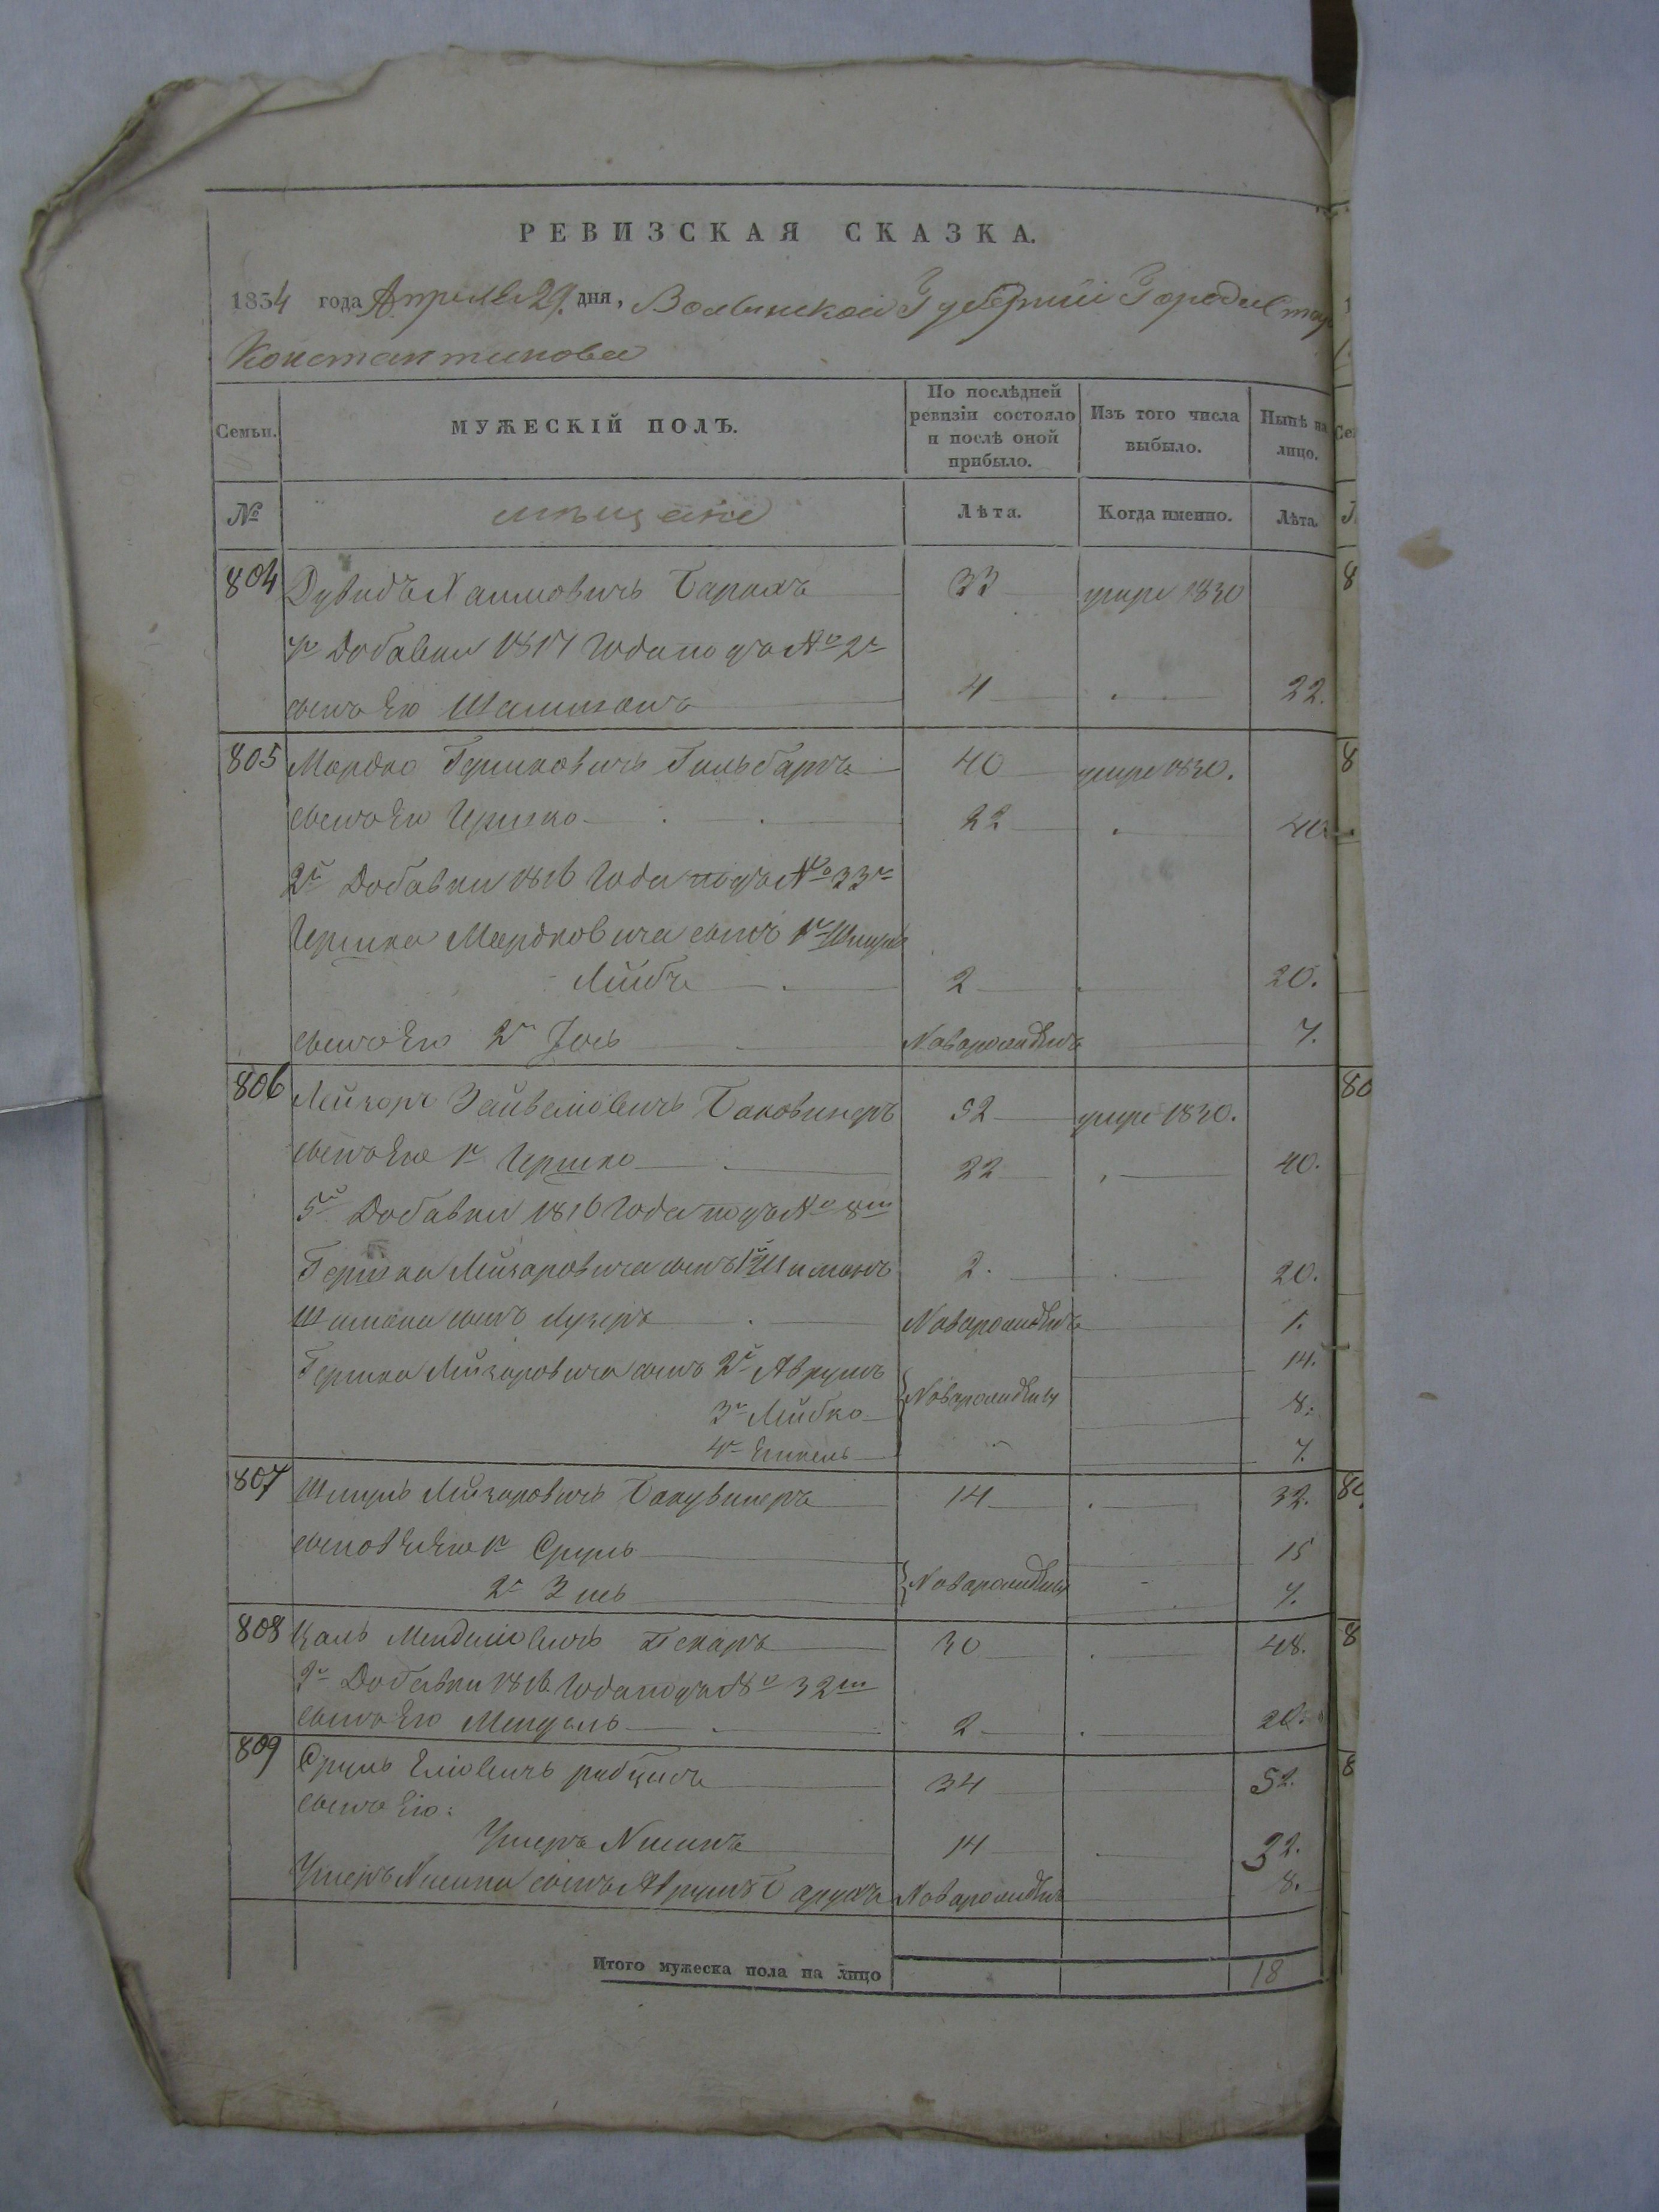 РЕВИЗСКАЯ СКАЗКА.
1834 года Апреля 29. дня, Волынской Губернии Города Старо
Константинова
Семьи. МУЖЕСКІЙ ПОЛЪ. По послѣдней ревизіи состояло и послѣ оной прибыло. Изъ того числа выбыло. Нынѣ на лицо.
№ мѣщане Лѣта. Когда именно. Лѣта.
804 Дувидъ Хаимовичъ 33 умре 1830
Добавки 1817 Года подъ № 2м
сынъ Его 4 22.
805 Мордко Гершковичъ Гильбартъ 40 умре 1830.
сынъ Его Гершко 22 40
2й Добавки 1816 Года подъ № 33м
Гершка Мордковича сынъ 1й Шмуль
Лейбъ 2 20.
сынъ Его 2й Іось Новорожденъ 7.
806 Лейзоръ Зайвеловичъ Баковинеръ 52 умре 1830.
сынъ Его 1й Гершко 22 40.
5й Добавки 1816 Года подъ № 8м
Гершка Лейзоровича сынъ 1й Шимонъ 2. 20.
Шимона сынъ Новорожденъ 1.
Гершка Лейзоровича сынъ 2й Аврумъ 14.
3й Лейбко Новорожденны 8.
4й 7.
807 Шмуль Лейзоровичъ Бакувинеръ 14 32.
сыновъ Его 1й Сруль 15
2й Зись Новорожденны 7.
808 Цаль Менделіовичъ Пекаръ 30 48.
Добавки 1816 Года подъ № 32м
сынъ Его Мендель 2 20.
809 Сруль Еліовичъ 34 52.
сынъ Его:
Ушеръ Нисинъ 14 32.
Ушеръ Нисина сынъ Аврумъ Барухъ Новорожденъ 8.
Итого мужеска пола на лицо 18